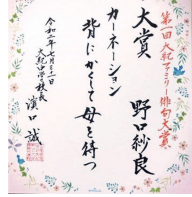 第一回大紀ファミリー俳句大賞
大賞 野口紗良
カーネーション
背にかくして母を待つ
令和二年七月三十一日
大紀中学校長
濱口誠